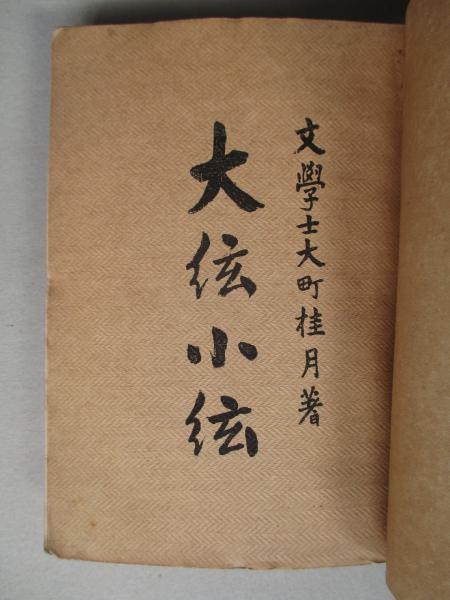 文學士大町桂月著
大絃小絃